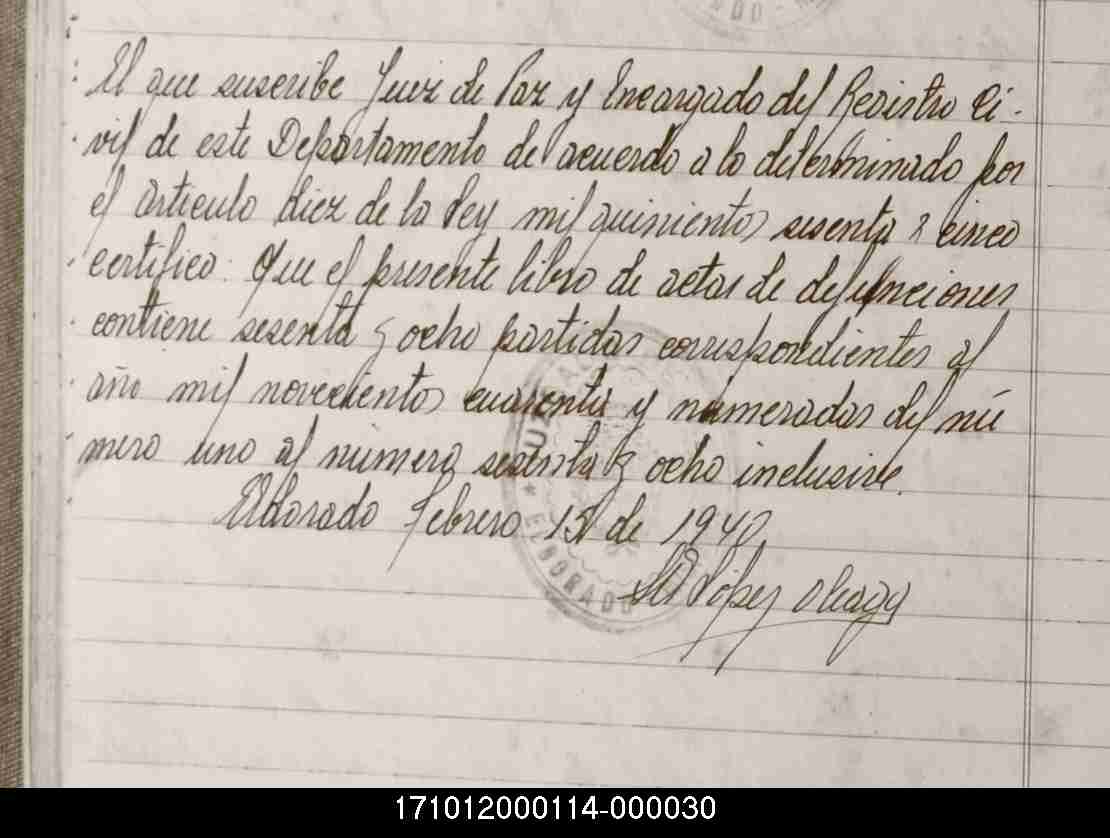 ORADO
El que suscribe Juez de Paz y Encargado del Registro Ci-
vil de este Departamento de acuerdo a lo determinado por
el articulo diez de la Ley mil quinientos sesenta y cinco
certifico: Que el presente libro de actas de defunciones
contiene sesenta y ocho partidas correspondientes al
año mil novecientos cuarenta y númeradas del nú
mero uno al número sesenta y ocho inclusive.
Eldorado Febrero de 1940
López
JUZGA
ELDORADO
171012000114-000030